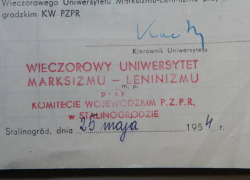 Wieczorowego Uniwersytetu Marksizmu-Leninizmu przy
grodzkim KW PZPR
Kierownik Uniwersytetu
WIECZOROWY UNIWERSYTET
MARKSIZMU – LENINIZMU
m. p.
przy
KOMITECIE WOJEWÓDZKIM P.Z.P.R.
w STALINOGRODZIE
Stalinogród, dnia 25 maja 1954 r.